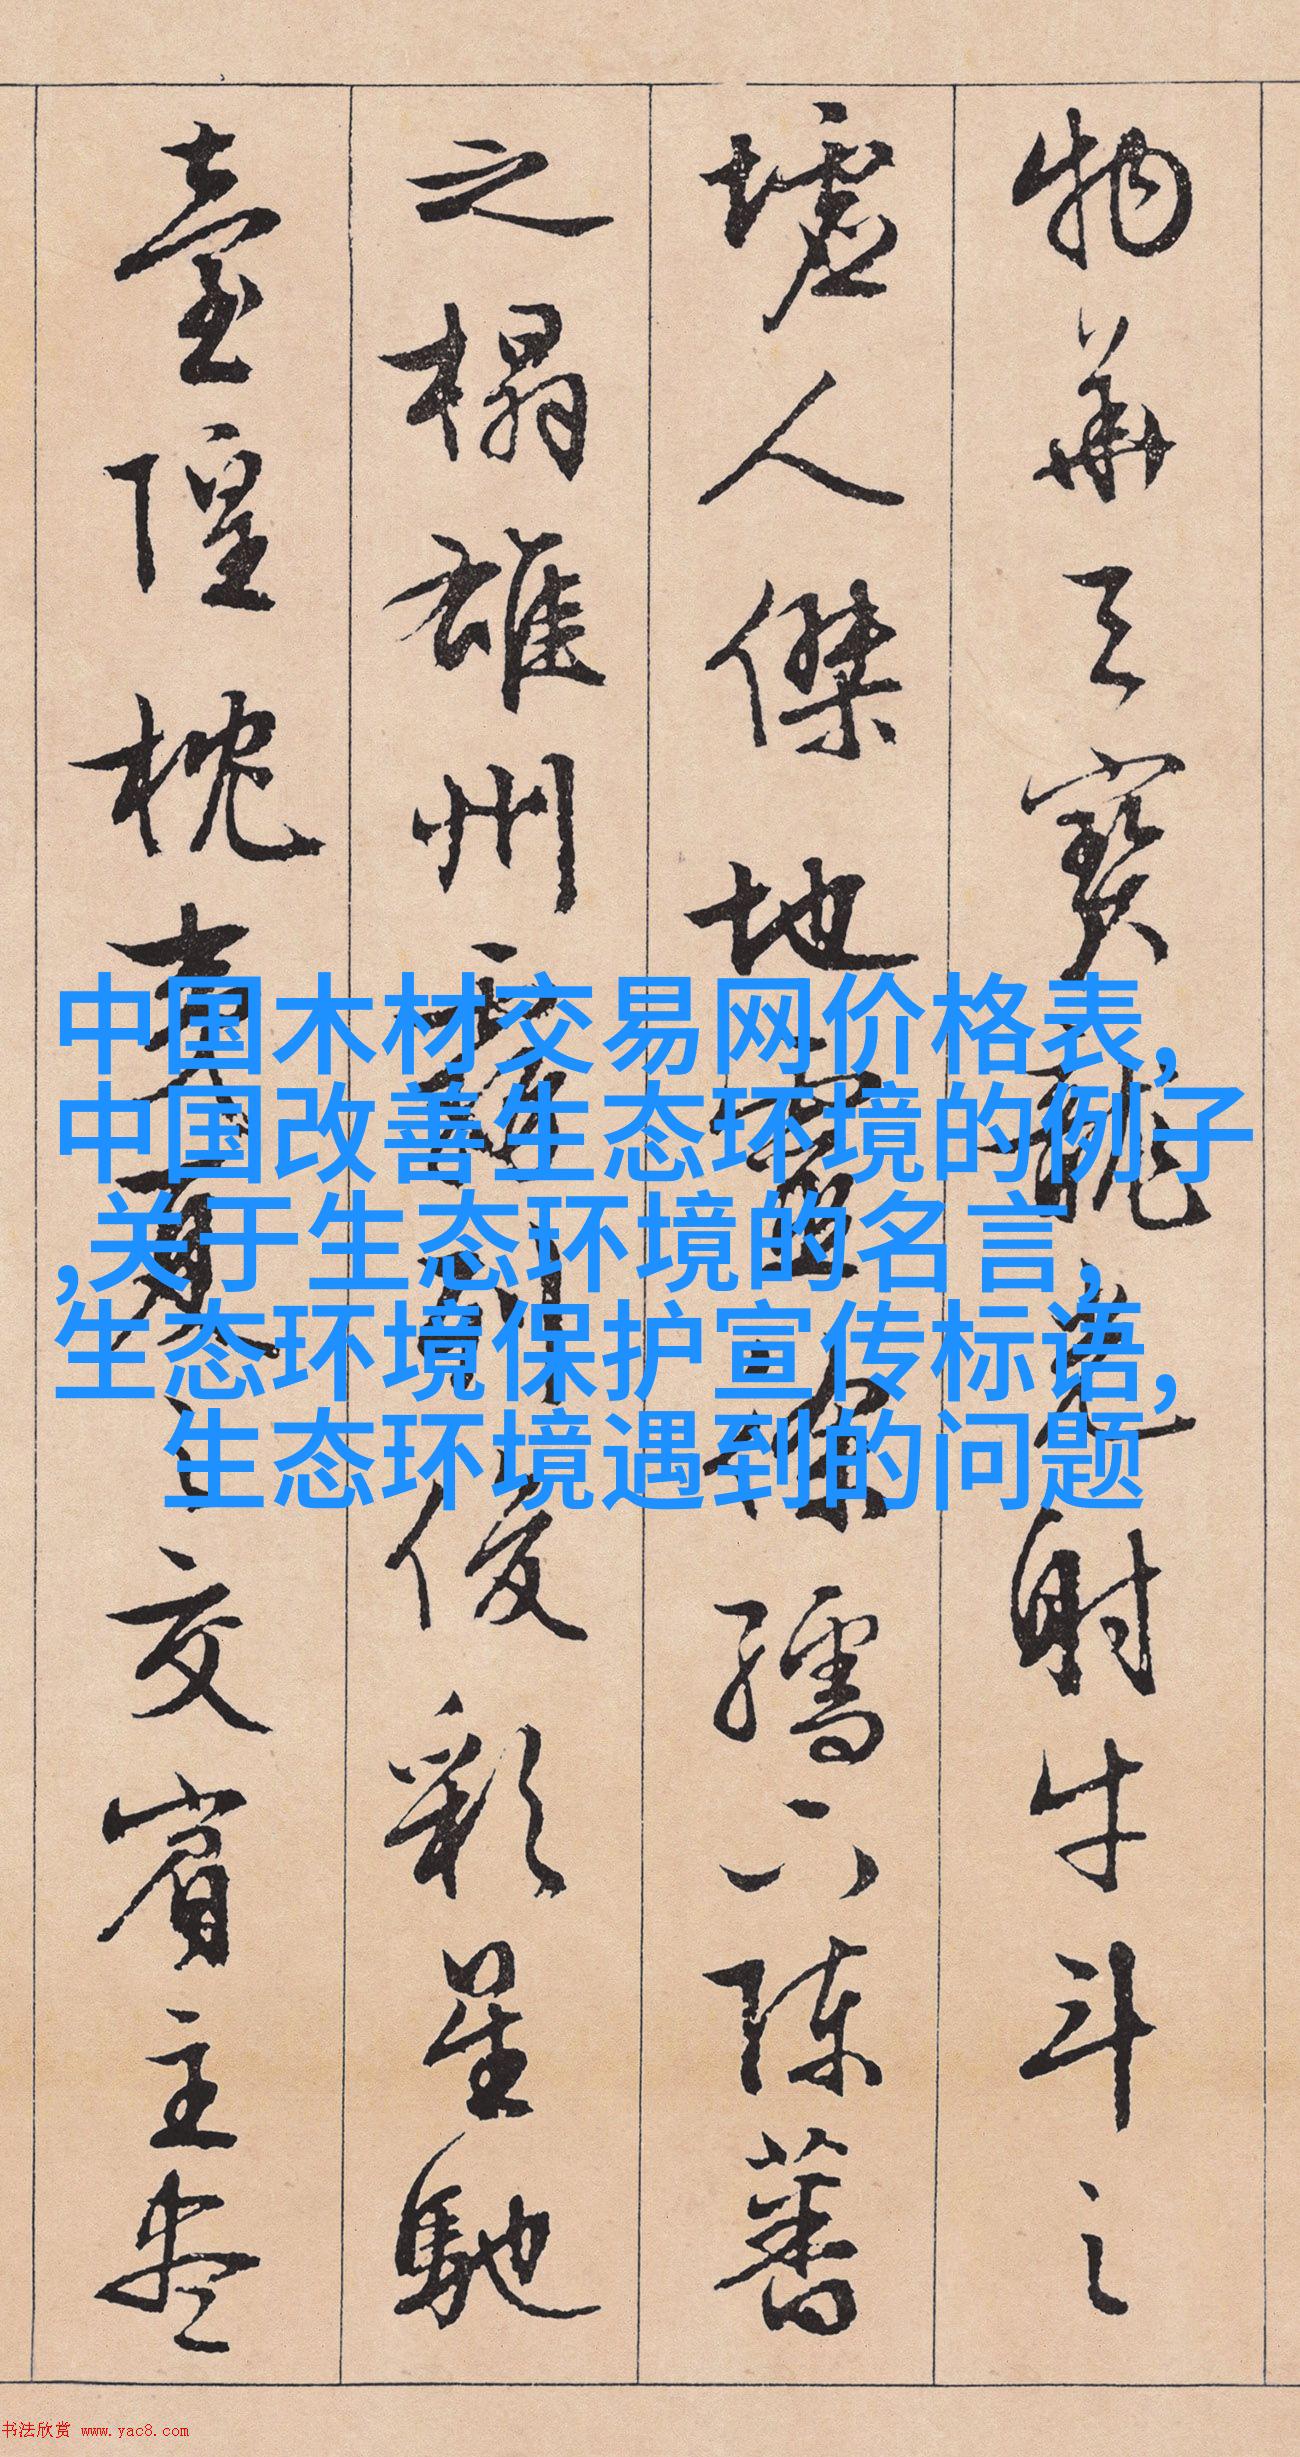 物華天寶龍光射牛斗之
墟人傑地靈徐孺下陳蕃
之榻雄州霧列俊彩星馳
臺隍枕夷夏之交賓主盡
中国木材交易网价格表,
中国改善生态环境的例子
,关于生态环境的名言,
生态环境保护宣传标语,
生态环境遇到的问题
书法欣赏 www.yac8.com